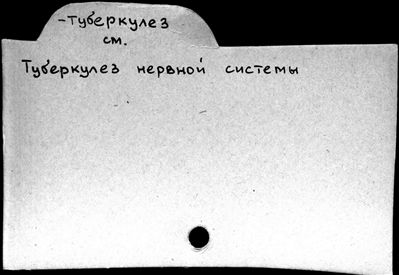 -Туберкулез
см.
Туберкулез нервной системы